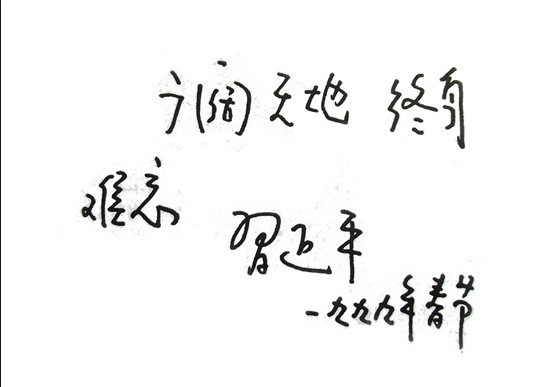 广阔天地 终身
难忘
习近平
一九九九年春节